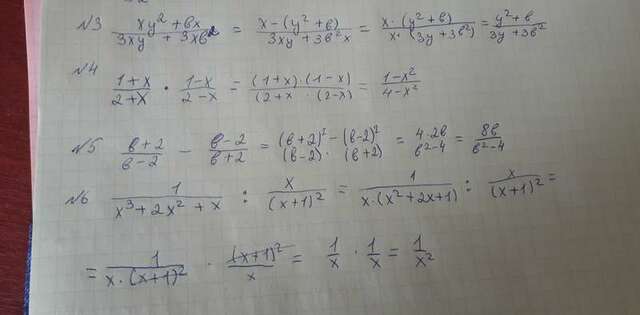 №3 (xy² + вx)/(3xy + 3xв²) = (x - (y² + в))/(3xy + 3в²x) = (x · (y² + в))/(x · (3y + 3в²)) = (y² + в)/(3y + 3в²)
№4 (1+x)/(2+x) · (1-x)/(2-x) = ((1+x) · (1-x))/((2+x · (2-x)) = (1-x²)/(4-x²)
№5 (в+2)/(в-2) - (в-2)/(в+2) = ((в+2)² - (в-2)²)/((в-2) · (в+2)) = (4·2в)/(в²-4) = 8в/(в²-4)
№6 1/(x³+2x²+x) : x/(x+1)² = 1/(x·(x²+2x+1)) : x/(x+1)² =
= 1/(x·(x+1)²) · (x+1)²/x = 1/x · 1/x = 1/x²